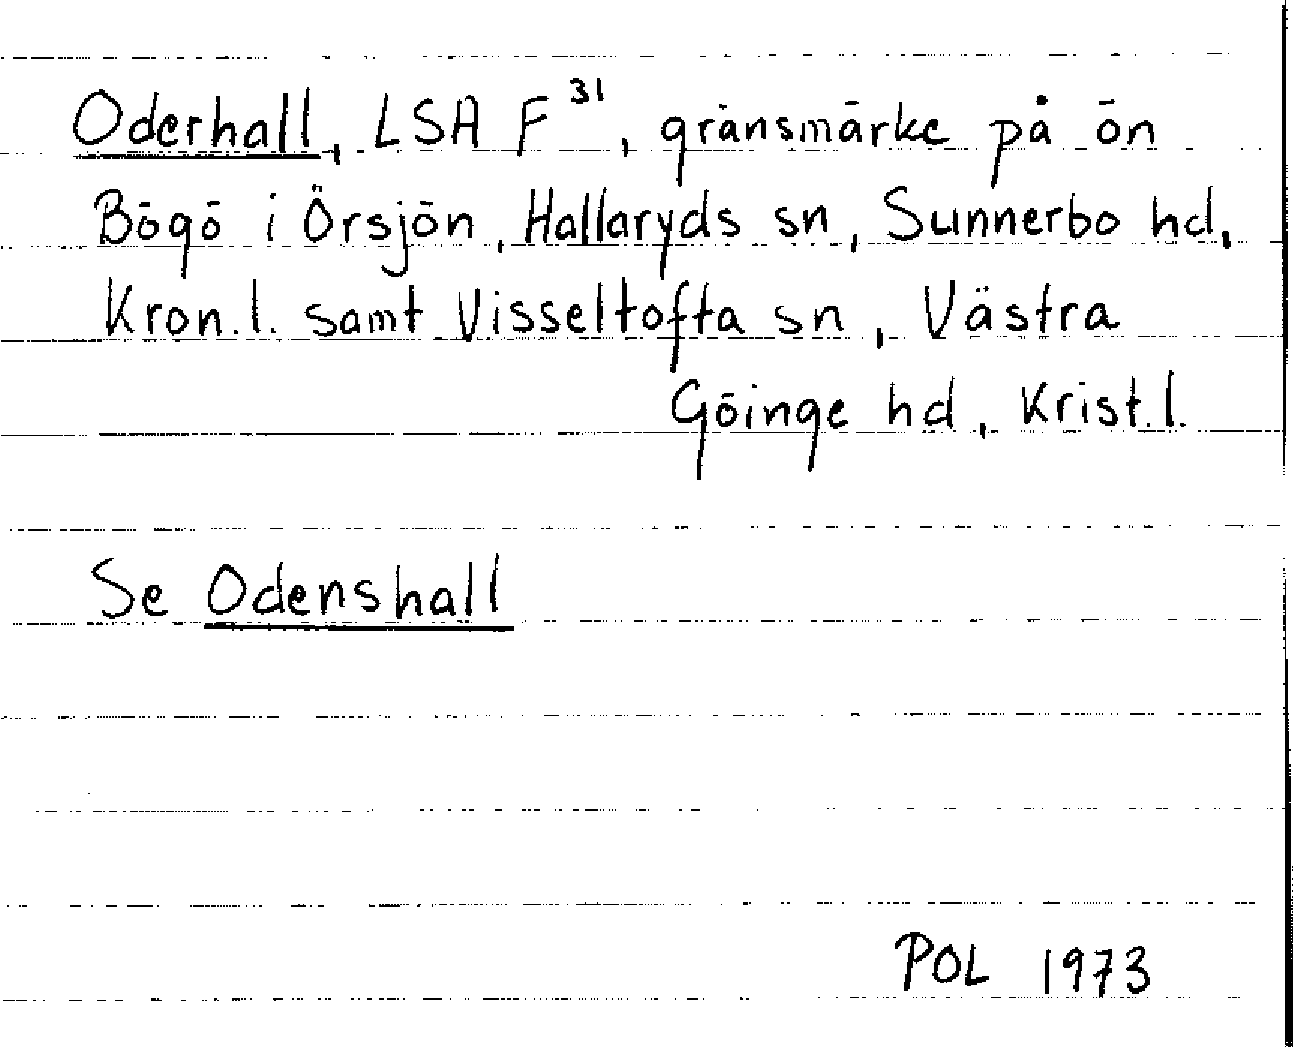 Oderhall, LSA F³¹, gränsmärke på ön
Bögö i Örsjön, Hallaryds sn, Sunnerbo hd,
Kron. l. samt Visseltofta sn, Västra
Göinge hd, Krist. l.
Se Odenshall
POL 1973